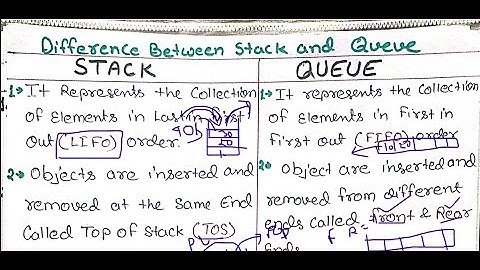 Difference Between Stack and Queue
STACK
1→ It Represents the Collection
of Elements in Last in first
out (LIFO) order.
40
30
20
2→ Objects are inserted and
removed at the same End
Called Top of Stack (TOS)
QUEUE
1→ It represents the Collection
of Elements in First in
First out (FIFO) order
10 20
2→ Object are inserted and
removed from different
ends called front & Rear
ends
F R